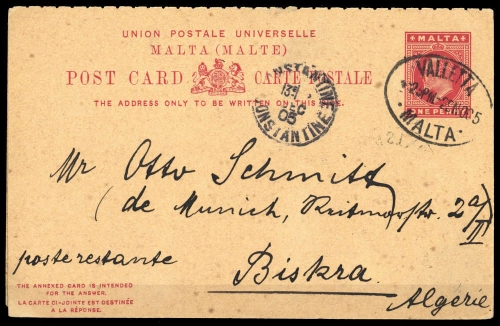 UNION POSTALE UNIVERSELLE
MALTA (MALTE)
POST CARD CARTE POSTALE
THE ADDRESS ONLY TO BE WRITTEN ON THIS SIDE.
MALTA
ONE PENNY
CONSTANTINE
DEC
05
CONSTANTINE
VALLETTA
MALTA
Mr Otto Schmitt
(de Munich, 2a/II)
poste restante
Biskra
Algerie
THE ANNEXED CARD IS INTENDED
FOR THE ANSWER.
LA CARTE CI-JOINTE EST DESTINÉE
A LA RÉPONSE.